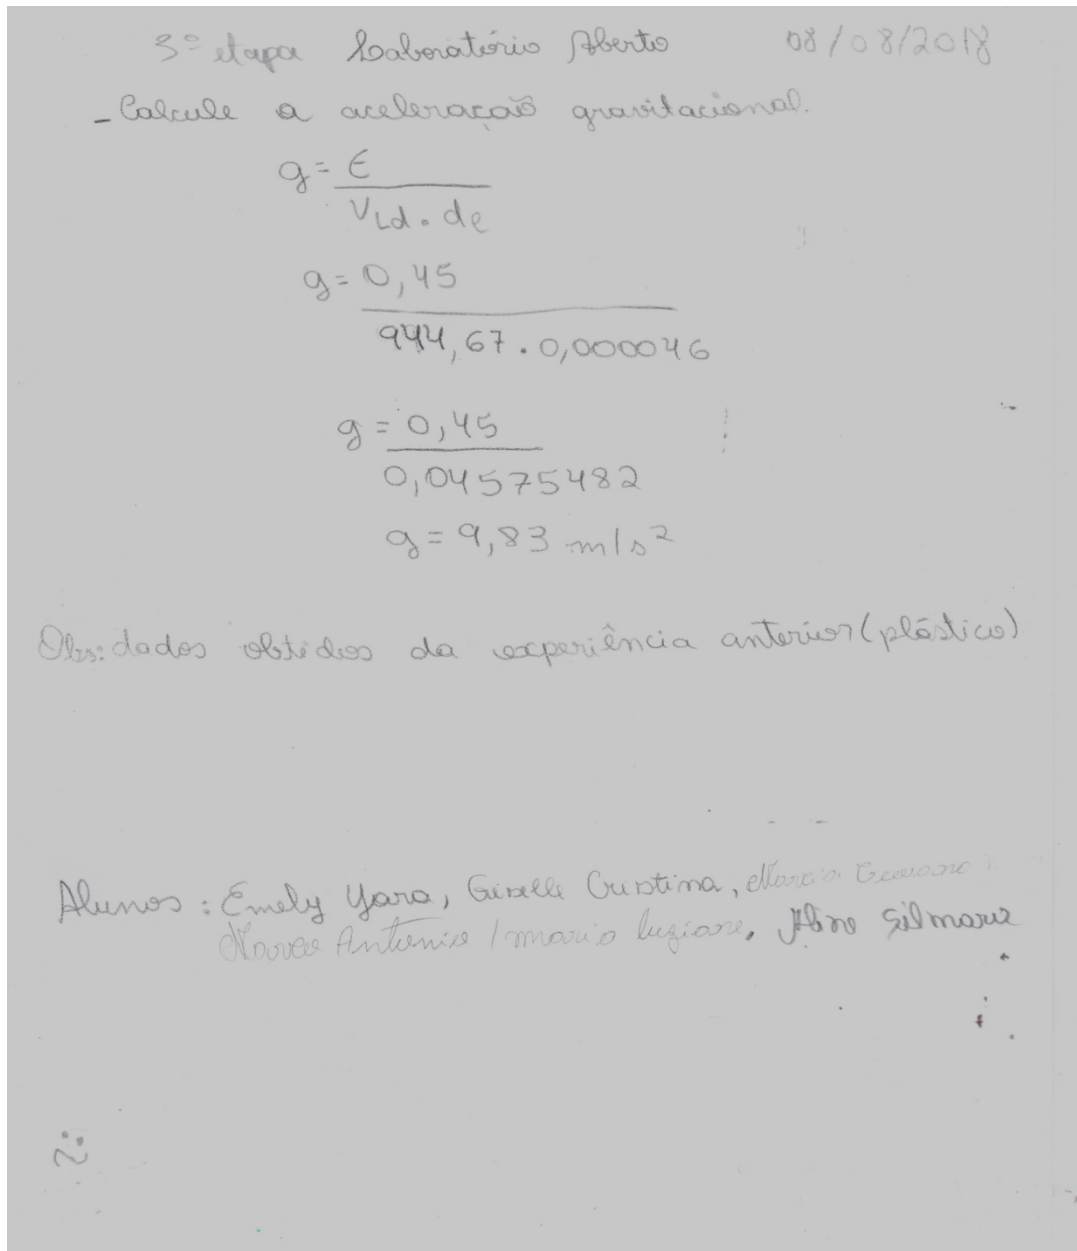 3º etapa Laboratório Aberto 08/08/2018
- Calcule a aceleração gravitacional.
g = E
VLd . de
g = 0,45
944,67 . 0,000046
g = 0,45
0,04575482
g = 9,83 m/s²
Obs: dados obtidos da experiência anterior (plástico)
Alunos : Emely Yara, Giselle Cristina,
Antonio / mario luziane, Aline Silmara